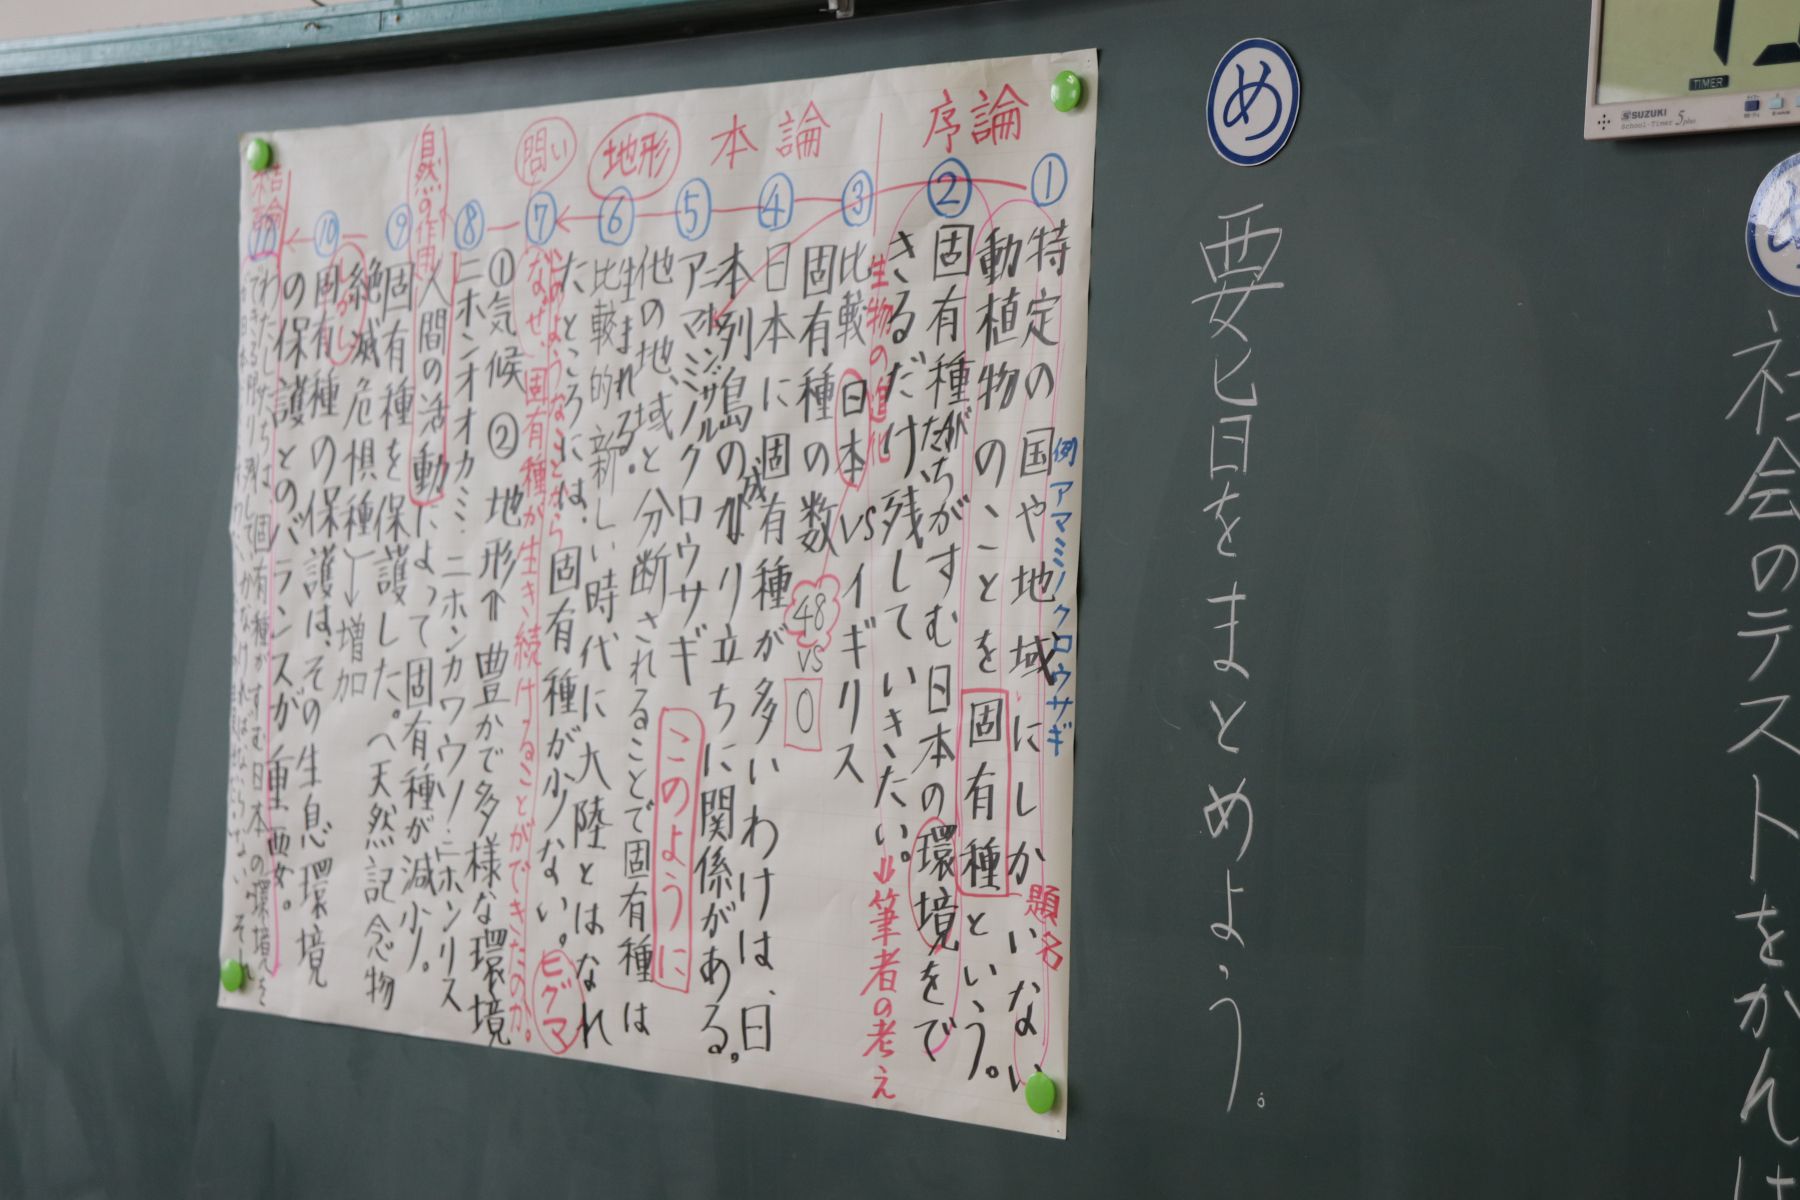 社会のテストをかんは
め
要旨をまとめよう。
TIMER
SUZUKI
School-Timer 5plus
序論
本論
地形
問い
自然の作用
結論
①
特定の国や地域にしかいない
動植物のことを固有種という。
例 アマミノクロウサギ
題名
②
固有種たちがすむ日本の環境をで
きるだけ残していきたい。
⇒筆者の考え
生物の進化
③
比較 日本 VS イギリス
固有種の数 48 VS 0
④
日本に固有種が多いわけは、日
本列島の成り立ちに関係がある。
⑤
アマミノクロウサギ
このように
他の地域と分断されることで固有種は
生まれる。
⑥
比較的新しい時代に大陸とはなれ
たところには、固有種が少ない。
ヒグマ
⑦
このようなことから
なぜ、固有種が生き続けることができたのか。
①気候 ② 地形⇑豊かで多様な環境
⑧
ニホンオオカミ ニホンカワウソ ニホンリス
人間の活動によって固有種が減少。
⑨
固有種を保護した。天然記念物
絶滅危惧種→増加
⑩
しかし
固有種の保護は、その生息環境
の保護とのバランスが重要。
⑪
わたしたちは、固有種がすむ日本の環境を
できる限り残していかなければならない。